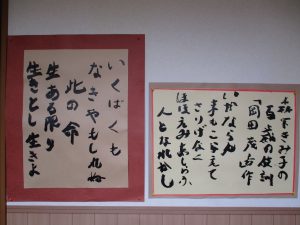 きみ子の
百歳の教訓
「岡田茂吉作
いかならん
事もこらえて
さりげなく
ほほえみ
人となれかし
いくばくも
なきやもしれぬ
此の命
生ある限り
生きとし生きよ